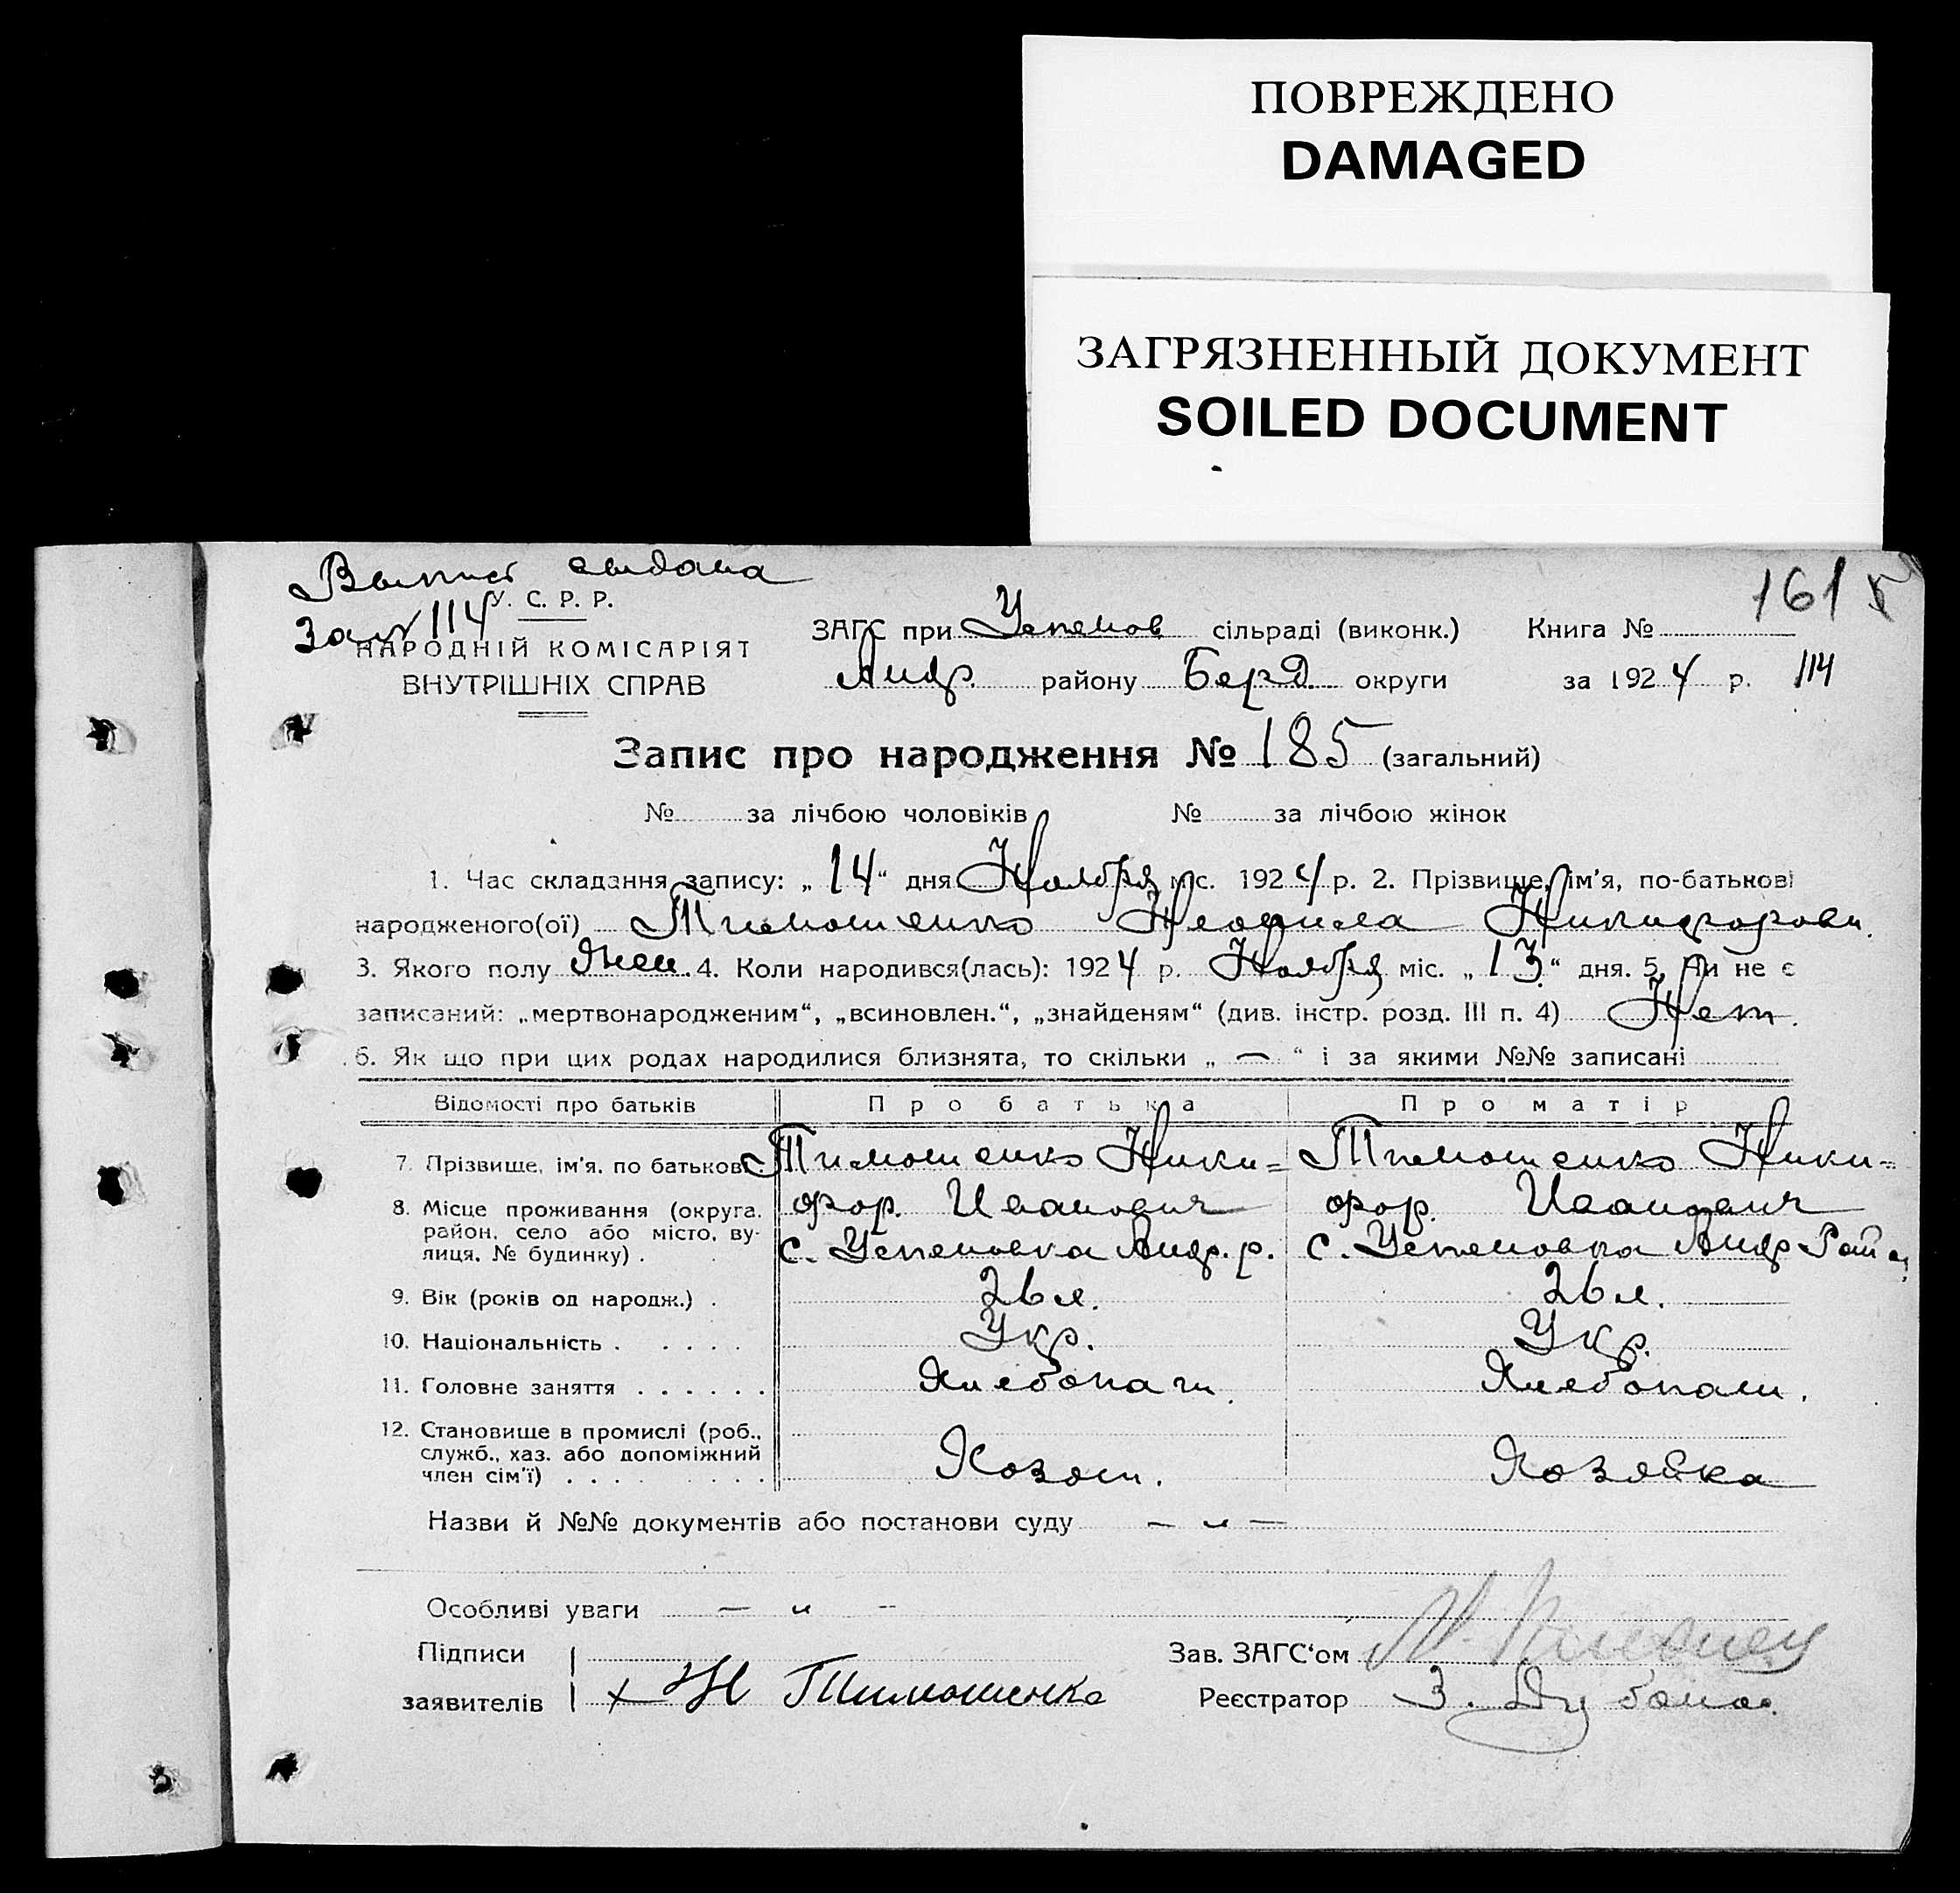 ПОВРЕЖДЕНО
DAMAGED
ЗАГРЯЗНЕННЫЙ ДОКУМЕНТ
SOILED DOCUMENT
Выпись выдана
за № 114
161
У. С. Р. Р.
НАРОДНІЙ КОМІСАРІЯТ
ВНУТРІШНІХ СПРАВ
ЗАГС при Успенов сільраді (виконк.) Книга №
Андр. району Берд. округи за 1924 р. 114
Запис про народження № 185 (загальний)
№ за лічбою чоловіків № за лічбою жінок
1. Час складання запису: „14“ дня Ноября міс. 1924 р. 2. Прізвище, ім'я, по-батькові
народженого(ої) Тимошенко Неонила Никифоровн.
3. Якого полу Жен. 4. Коли народився(лась): 1924 р. Ноября міс. „13“ дня. 5. Чи не є
записаний: „мертвонародженим“, „всиновлен.“, „знайденям“ (див. інстр. розд. III п. 4) Нет.
6. Як що при цих родах народилися близнята, то скільки „—“ і за якими №№ записані
Відомості про батьків Про батька Про матір
7. Прізвище, ім'я, по батькові Тимошенко Ники= Тимошенко Ники=
8. Місце проживання (округа, фор. Иванович фор. Иванович
район, село або місто, ву-
лиця, № будинку) . с. Успеновка Андр. р. с. Успеновка Андр Рай
9. Вік (років од народж.) . 26 л. 26 л.
10. Національність . . . . . Укр. Укр.
11. Головне заняття . . . . . . Хлебопаш. Хлебопаш.
12. Становище в промислі (роб.,
служб., хаз. або допоміжний
член сім'ї) . . . . . . . . Хозяин. Хозяйка
Назви й №№ документів або постанови суду — „ —
Особливі уваги — „ —
Підписи
заявителів + Н Тимошенко
Зав. ЗАГС'ом
Реєстратор З.